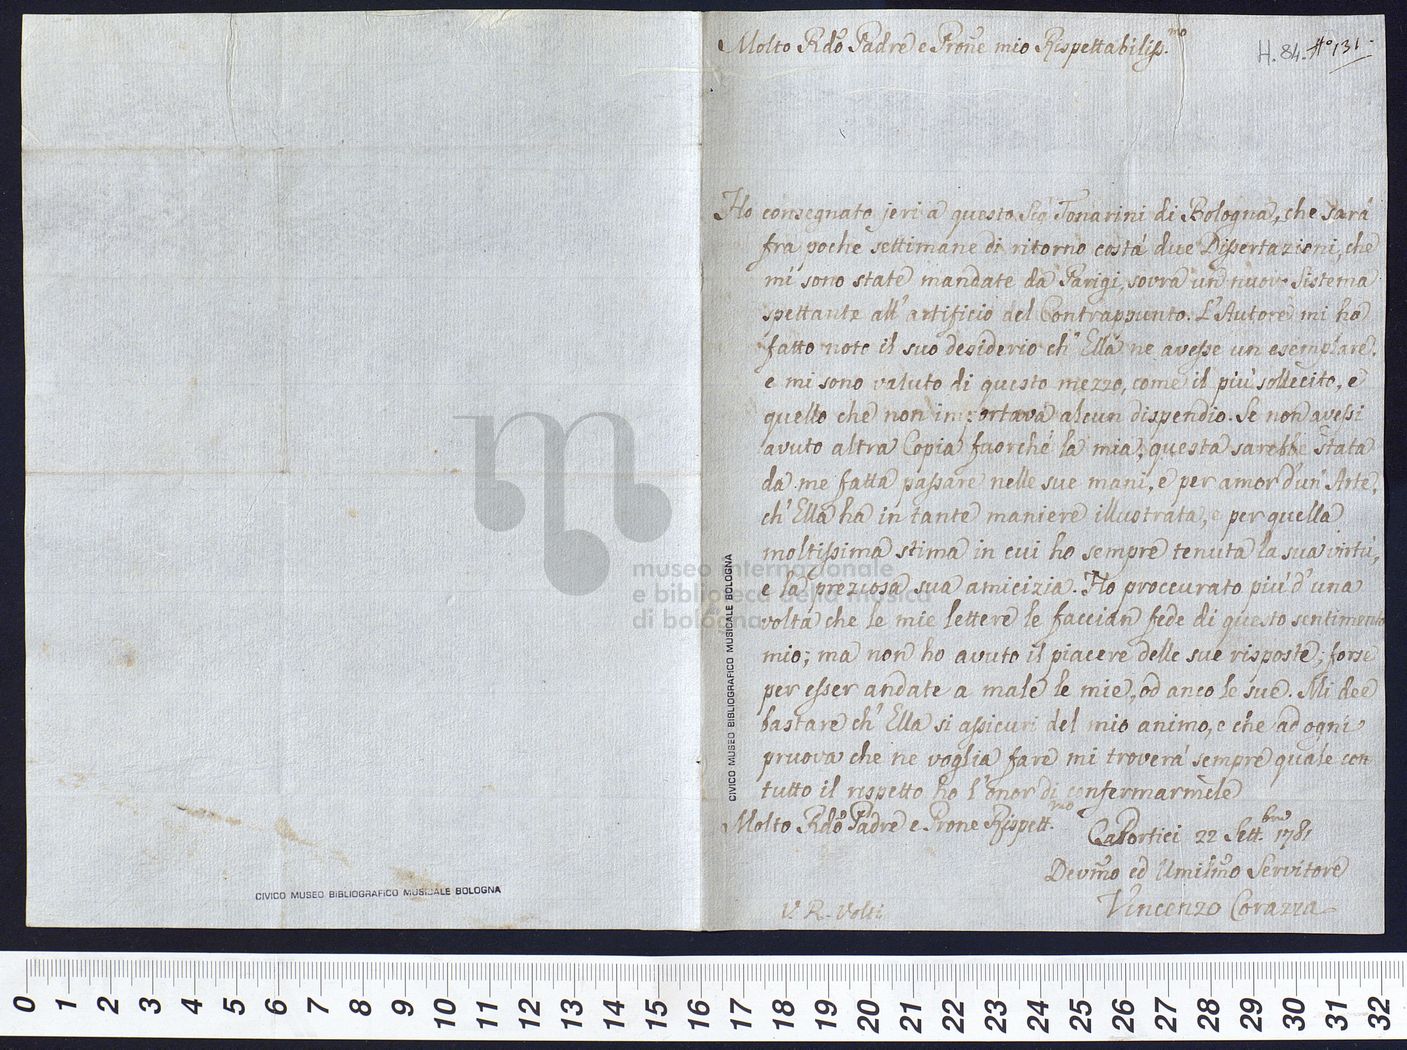 Molto Rdo Padre e Prone mio Rispettabiliss.mo
H. 84. A° 131.
Ho consegnato jeri a questo Sig Tonarini di Bologna, che sarà
fra poche settimane di ritorno costà due Dissertazioni, che
mi sono state mandate da Parigi, sovra un nuovo Sistema
spettante all'artificio del Contrappunto. L'Autore mi ha
fatto noto il suo desiderio ch'Ella ne avesse un esemplare.
e mi sono valuto di questo mezzo, come il più sollecito, e
quello che non importava alcun dispendio. Se non avessi
avuto altra Copia fuorchè la mia, questa sarebbe stata
da me fatta passare nelle sue mani, e per amor d'un'Arte,
ch'Ella ha in tante maniere illustrata, e per quella
moltissima stima in cui ho sempre tenuta la sua virtù,
e la preziosa sua amicizia. Ho proccurato più d'una
volta che le mie lettere le faccian fede di questo sentimento
mio; ma non ho avuto il piacere delle sue risposte, forse
per esser andate a male le mie, od anco le sue. Mi dee
bastare ch'Ella si assicuri del mio animo, e che ad ogni
pruova che ne voglia fare mi troverà sempre quale con
tutto il rispetto ho l'onor di confermarmele
Molto Rdo Padre e Prone Rispett.mo
Da Portici 22 Sett.bre 1781
Devmo ed Umilmo Servitore
Vincenzo Corazza
V. R. Volti
CIVICO MUSEO BIBLIOGRAFICO MUSICALE BOLOGNA
CIVICO MUSEO BIBLIOGRAFICO MUSICALE BOLOGNA
museo internazionale
e biblioteca della musica
di bologna
0 1 2 3 4 5 6 7 8 9 10 11 12 13 14 15 16 17 18 19 20 21 22 23 24 25 26 27 28 29 30 31 32